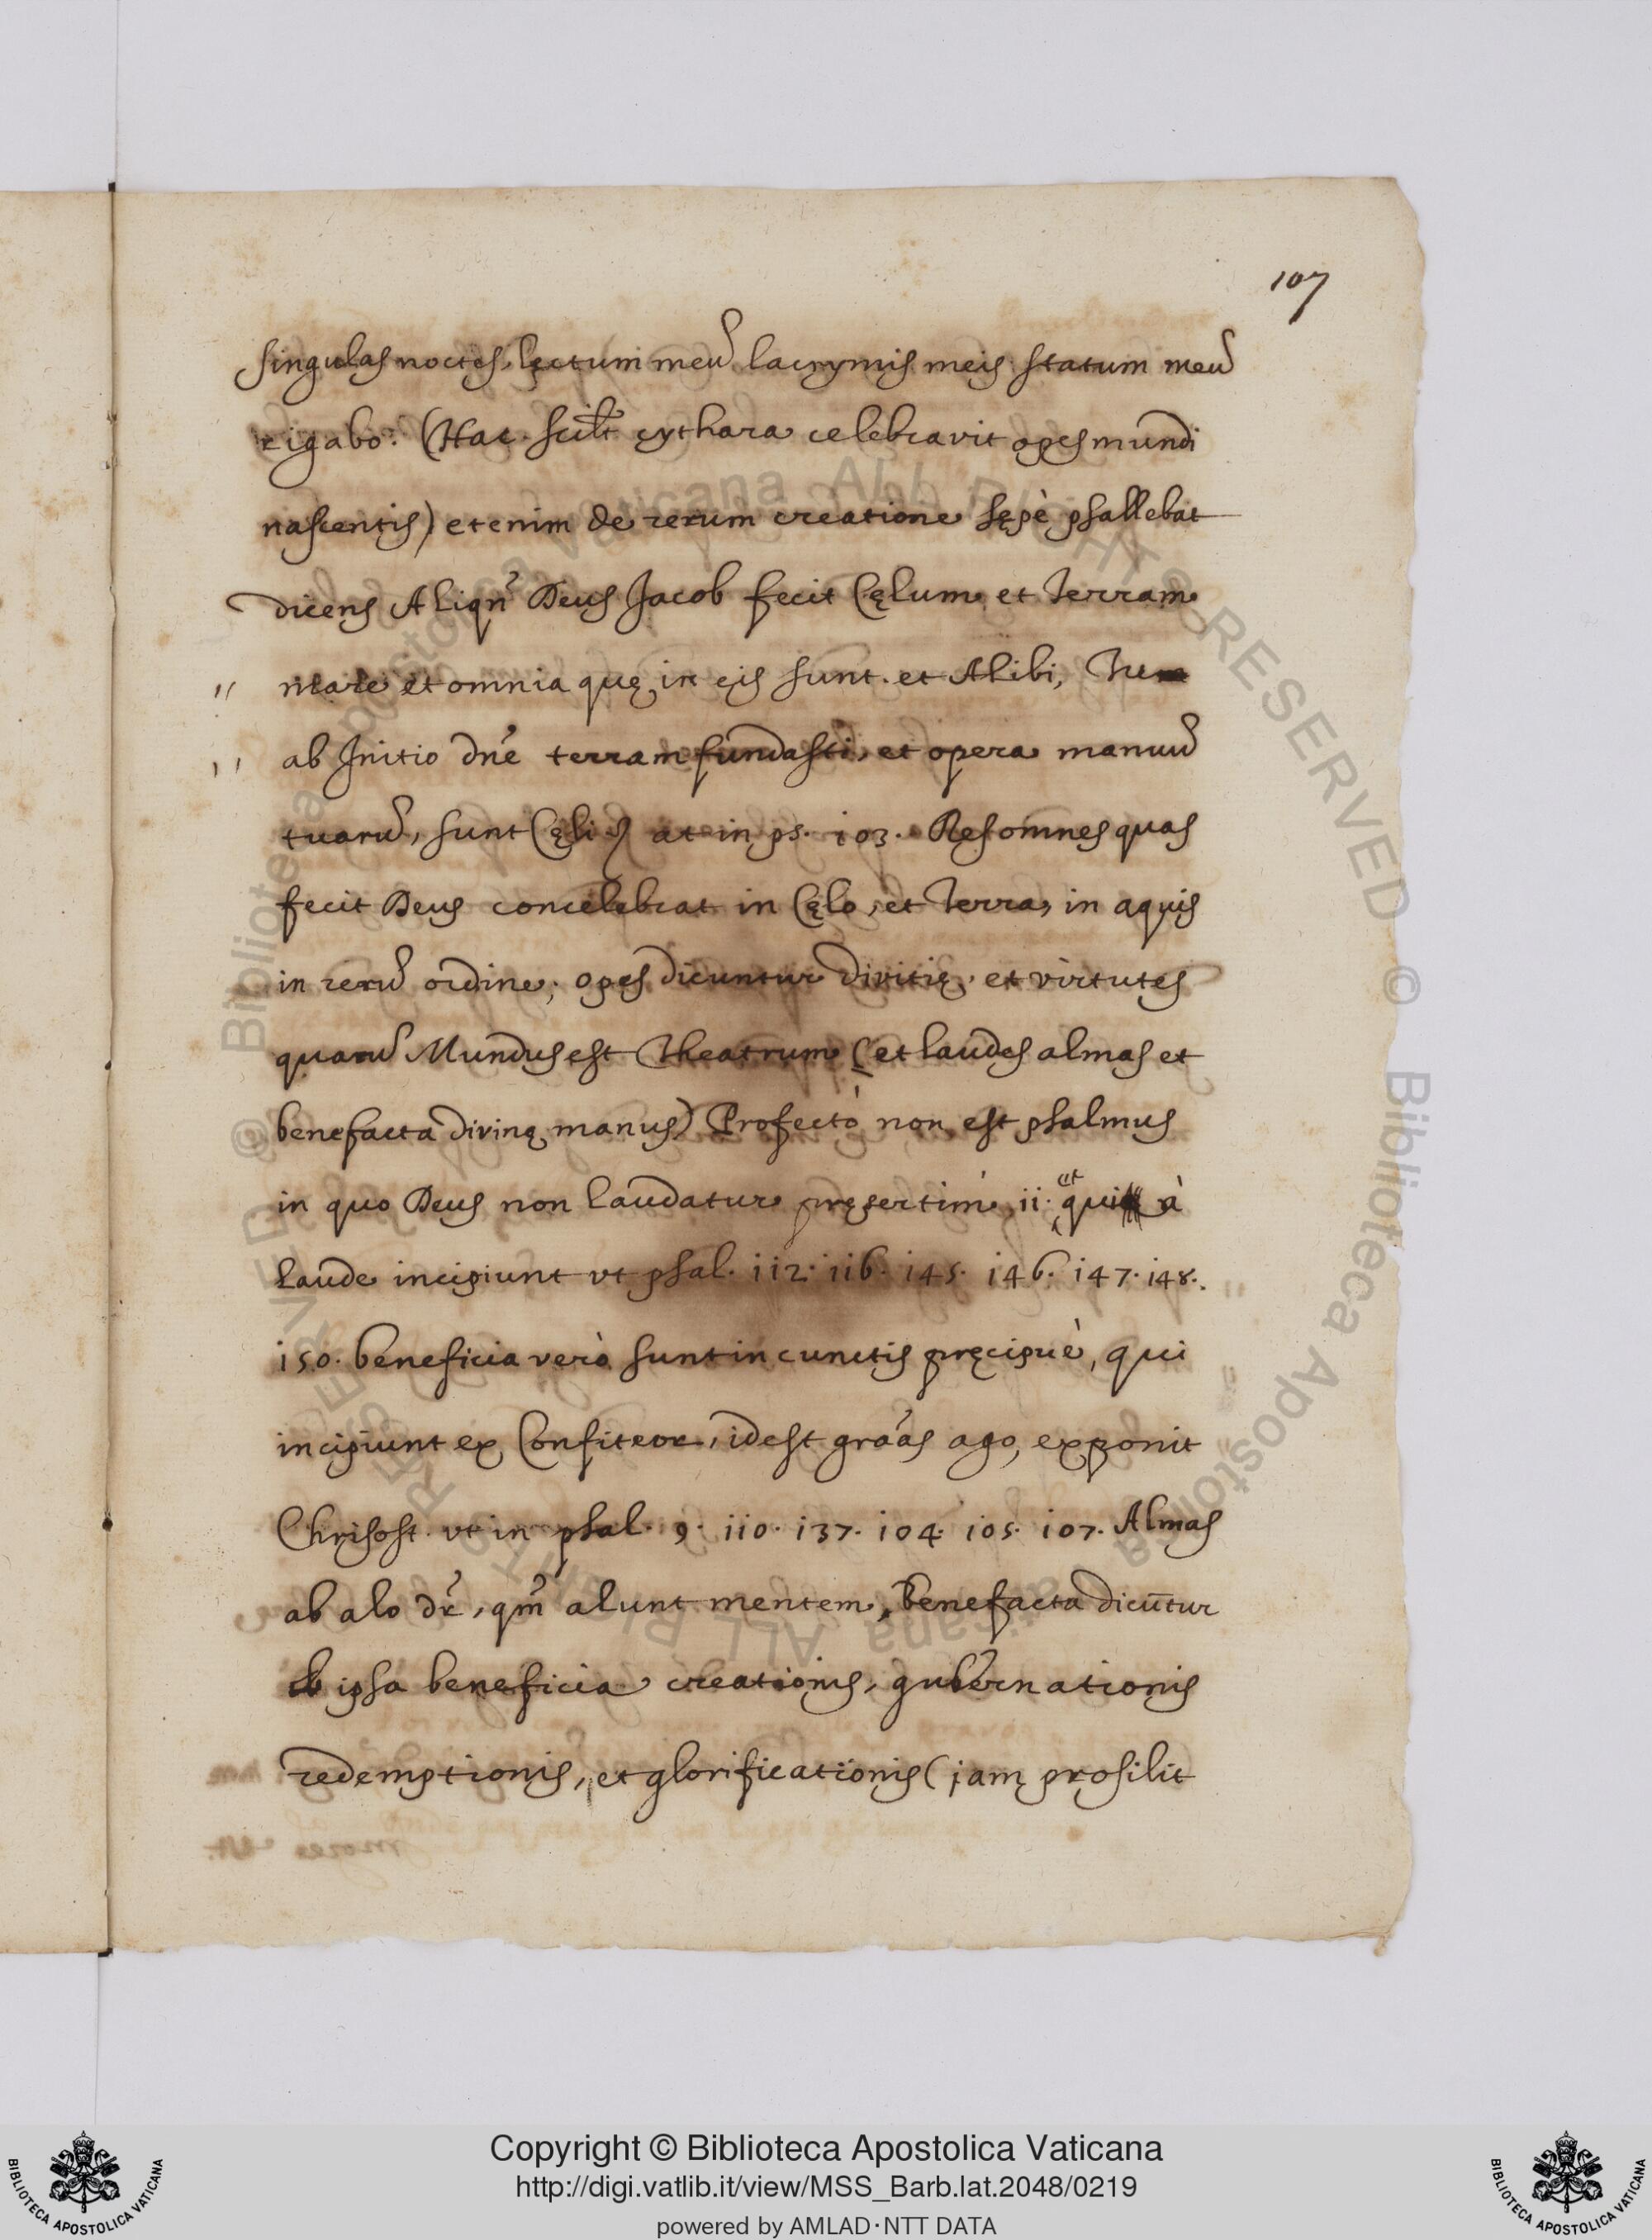 107
singulas noctes, lęctum meũ lacrymis meis statum meũ
rigabo. (Hac scilt cythara celebravit opes mundi
nascentis) etenim de rerum creatione sępè psallebat
dicens Aliqñ Deus Jacob fecit Cęlum et Terram
" mare et omnia quę in eis sunt. et Alibi, Tu
" ab Initio dñe terram fundasti, et opera manuũ
tuarũ, sunt Cęli at in ps. 103. Res omnes quas
fecit Deus concelebrat in Cęlo, et Terra, in aquis
in rerũ ordine; opes dicuntur divitię, et virtutes
quarũ Mundus est Theatrum (et laudes almas et
benefacta divinę manus) Profectò non est psalmus
in quo Deus non laudatur pręsertim ii et qui à
laude incipiunt vt psal. 112. 116. 145. 146. 147. 148.
150. beneficia verò sunt in cunctis pręcipuè, qui
incipiunt ex Confiteor, idest gra͂as ago, exponit
Chrisost. vt in psal. 9. 110. 137. 104. 105. 107. Almas
ab alo dr̃, qm̃ alunt mentem, benefacta dicũtur
ob ipsa beneficia creationis, gubernationis
redemptionis, et glorificationis (jam prosilit
© Biblioteca Apostolica Vaticana ALL RIGHTS RESERVED
© Biblioteca Apostolica Vaticana ALL RIGHTS RESERVED
BIBLIOTECA APOSTOLICA VATICANA
Copyright © Biblioteca Apostolica Vaticana
http://digi.vatlib.it/view/MSS_Barb.lat.2048/0219
powered by AMLAD·NTT DATA
BIBLIOTECA APOSTOLICA VATICANA